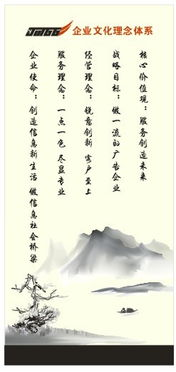 企业文化理念体系
核心价值观：服务创造未来
战略目标：做一流的广告企业
经营理念：锐意创新 客户至上
服务理念：一点一色 尽显专业
企业使命：创造信息新生活 做信息社会桥梁